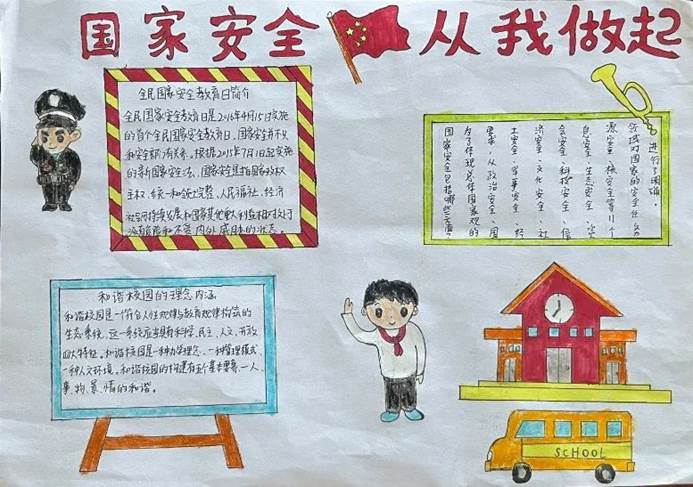 国家安全 从我做起
全民国家安全教育日简介
全民国家安全教育日是2016年4月15日实施
的首个全民国家安全教育日。国家安全并不仅
和安全部门有关系。根据2015年7月1日起实施
的新国家安全法,国家安全是指国家政权
主权、统一和领土完整、人民福祉、经济
社会可持续发展和国家其他重大利益相对处于
没有危险和不受内外威胁的状态。
国家安全包括哪些方面?
为了体现总体国家观的
要求,从政治安全、国
土安全、军事安全、经
济安全、文化安全、社
会安全、科技安全、信
息安全、生态安全、
源安全、核安全等11个
领域对国家的安全任务
进行了明确。
和谐校园的理念内涵
和谐校园是一个符合人性规律与教育规律构筑的
生态系统,这一系统应当具有科学、民主、人文、开放
四大特征。和谐校园是一种办学理念、一种管理模式、
一种人文环境。和谐校园的构建有五个基本要素—人
事、物、景、情的和谐。
SCHOOL